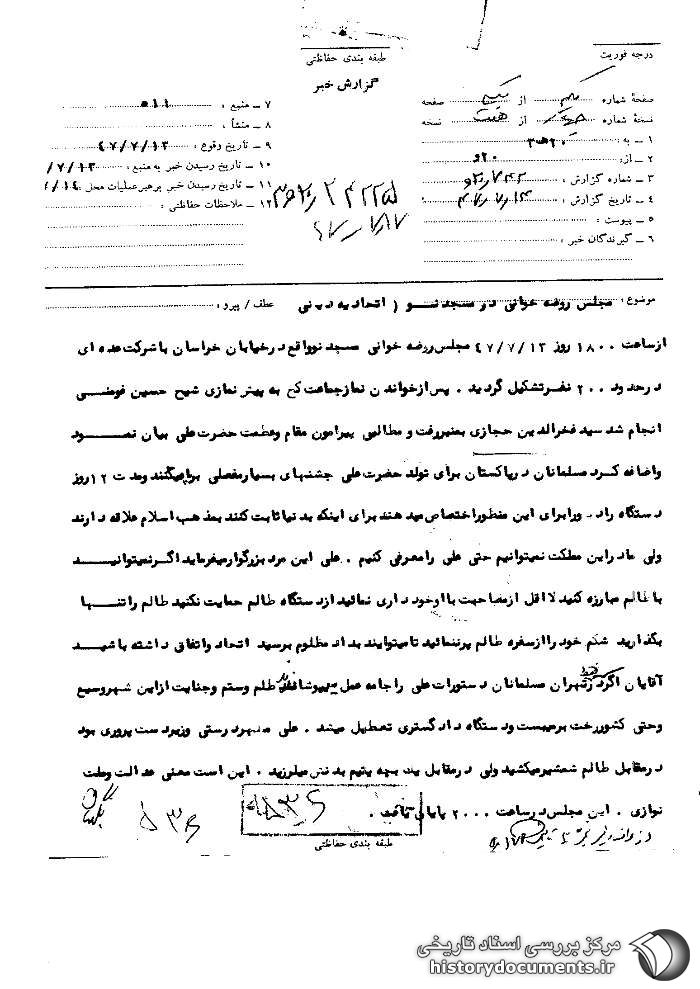 طبقه بندی حفاظتی
گزارش خبر
درجه فوریت
صفحهٔ شماره یکم از یک صفحه
نسخهٔ شماره از نسخه
۱ ـ به :
۲ ـ از : ۲۰
۳ ـ شماره گزارش :
۴ ـ تاریخ گزارش :
۵ ـ پیوست :
۶ ـ گیرندگان خبر :
۷ ـ منبع :
۸ ـ منشأ :
۹ ـ تاریخ وقوع : ۴۷/۷/۱۳
۱۰ ـ تاریخ رسیدن خبر به منبع : /۷/۱۳
۱۱ ـ تاریخ رسیدن خبر برهبر عملیات محل :
۱۲ ـ ملاحظات حفاظتی :
موضوع : مجلس روضه خوانی در مسجد نو ( اتحادیه دینی عطف / پیرو :
از ساعت ۱۸۰۰ روز ۴۷/۷/۱۳ مجلس روضه خوانی مسجد نو واقع در خیابان خراسان با شرکت عده ای
در حدود ۲۰۰ نفر تشکیل گردید . پس از خواندن نماز جماعت که به پیش نمازی شیخ حسین
انجام شد سید فخرالدین حجازی بمنبر رفت و مطالبی پیرامون مقام و عظمت حضرت علی بیان نمود
و اضافه کرد مسلمانان در پاکستان برای تولد حضرت علی جشنهای بسیار مفصلی برپا میکنند و مدت ۱۲ روز
دستگاه رادیو را برای این منظور اختصاص میدهند برای اینکه بدنیا ثابت کنند بمذهب اسلام علاقه دارند
ولی ما در این مملکت نمیتوانیم حتی علی را معرفی کنیم . علی این مرد بزرگوار میفرماید اگر نمیتوانید
با ظالم مبارزه کنید لااقل از مصاحبت با او خودداری نمائید از دستگاه ظالم حمایت نکنید ظالم را تنها
بگذارید شکم خود را از سفره ظالم پر ننمائید تا میتوانید بداد مظلوم برسید اتحاد و اتفاق داشته باشید
آقایان اگر در تهران مسلمانان دستورات علی را جامه عمل میپوشاندند ظلم و ستم و جنایت از این شهر وسیع
و حتی کشور رخت برمیبست و دستگاه دادگستری تعطیل میشد . علی مظهر درستی و زیردست پروری بود
در مقابل ظالم شمشیر میکشید ولی در مقابل یک بچه یتیم بدنش میلرزید . این است معنی عدالت و ملت
نوازی . این مجلس در ساعت ۲۰۰۰ پایان یافت .
طبقه بندی حفاظتی
مرکز بررسی اسناد تاریخی
historydocuments.ir